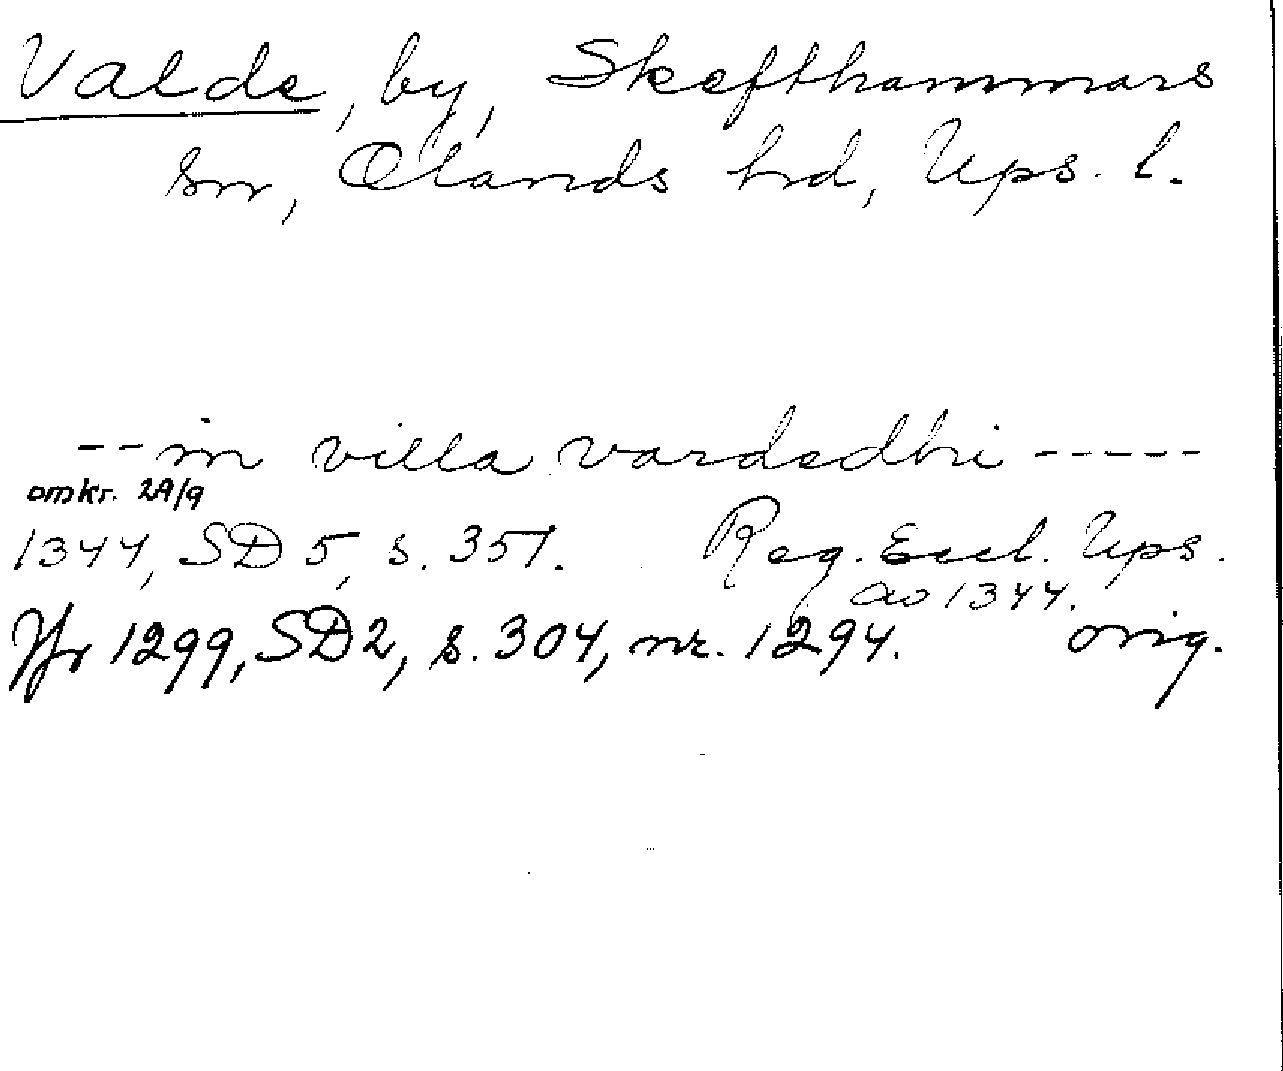 Valde, by, Skefthammars
sn, Olands hd, Ups. l.
-- in villa vardedhi -----
omkr. 29/9
1344, SD 5, s. 351. Reg. Eccl. Ups.
ao 1344.
Jfr 1299, SD 2, s. 304, nr. 1294. orig.